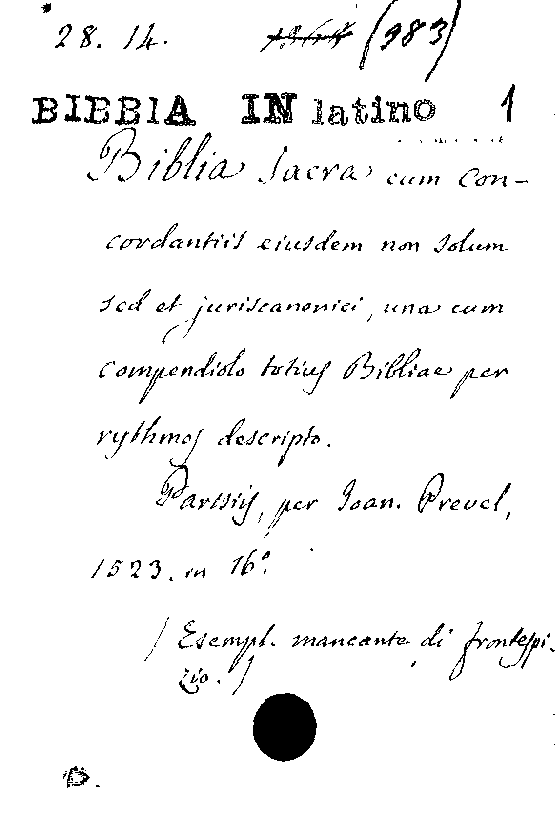 28. 14. (983)
BIBBIA IN latino 1
Biblia Sacra cum con-
cordantiis eiusdem non solum
sed et juriscanonici, una cum
compendiolo totius Bibliae per
rythmos descripto.
Parisiis, per Joan. Prevel,
1523. in 16º.
(Esempl. mancante di frontespi-
zio.)